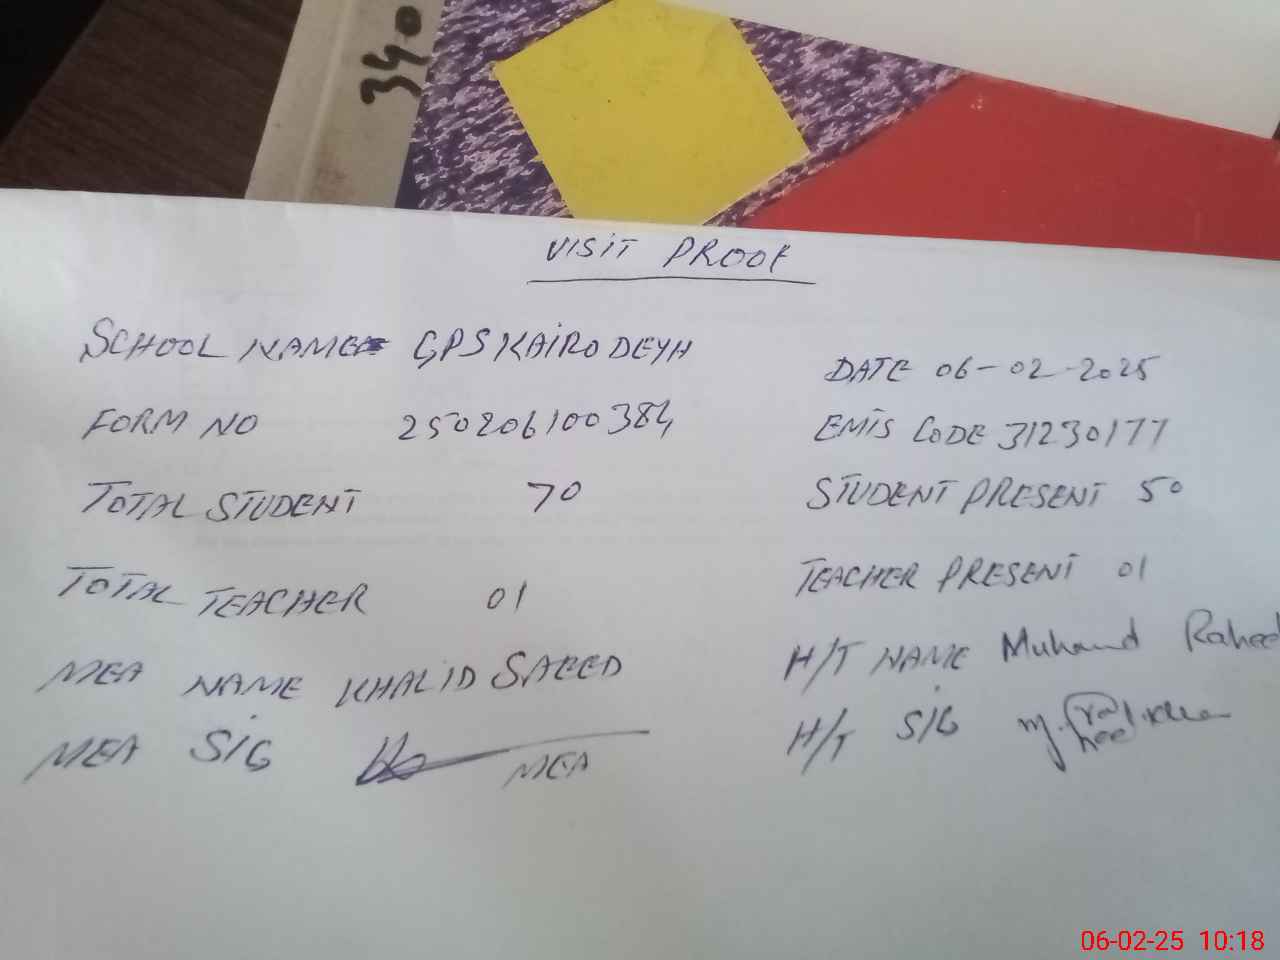 340
VISIT PROOF
SCHOOL NAME GPS KAIRO DEYH
DATE 06-02-2025
FORM NO 250206100384
EMIS CODE 31230177
TOTAL STUDENT 70
STUDENT PRESENT 50
TOTAL TEACHER 01
TEACHER PRESENT 01
MEA NAME KHALID SAEED
H/T NAME Muhamd Raheed
MEA SIG MEA
H/T SIG
06-02-25 10:18